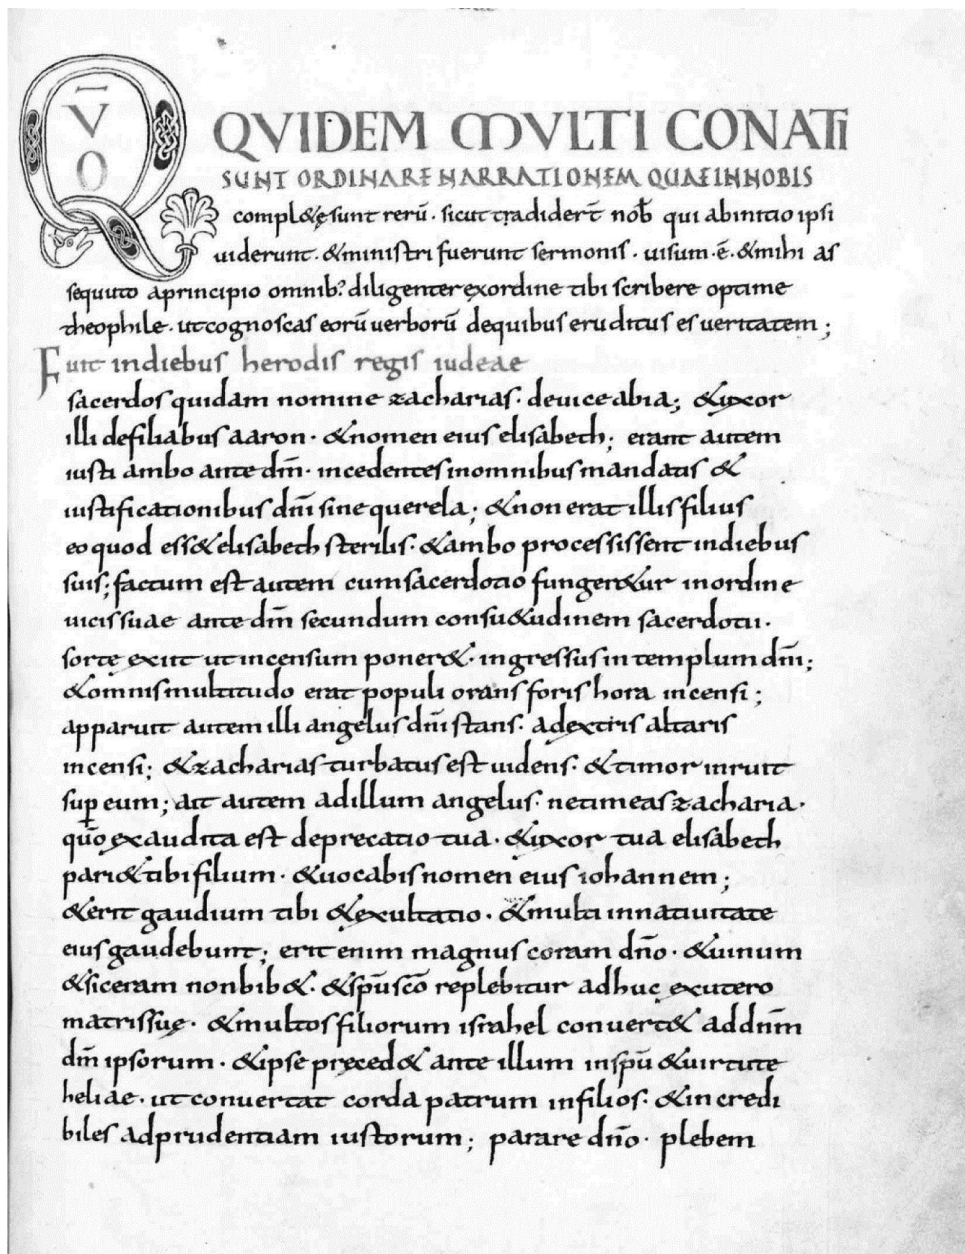 QV̄O QVIDEM MVLTI CONATI
SUNT ORDINARE NARRATIONEM QUAE IN NOBIS
compl&ę sunt rerū · sicut tradider̄t nob̄ qui abinitio ipsi
uiderunt · &ministri fuerunt sermonis · uisum · ē · &mihi as
sequuto aprincipio omnib; diligenter exordine tibi scribere optime
theophile · ut cognoscas eorū uerborū dequibus eruditus es ueritatem ;
Fuit indiebus herodis regis iudeae
sacerdos quidam nomine zacharias · deuice abia ; &uxor
illi defiliabus aaron · &nomen eius elisabeth ; erant autem
iusti ambo ante dm̄ · incedentes inomnibus mandatis &
iustificationibus dn̄i sine querela ; &non erat illis filius
eo quod ess& elisabeth sterilis · &ambo processissent indiebus
suis ; factum est autem cum sacerdotio funger&ur inordine
uicis suae ante dm̄ secundum consu&udinem sacerdotii ·
sorte exiit ut incensum poner& · ingressus in templum dn̄i ;
&omnis multitudo erat populi orans foris hora incensi ;
apparuit autem illi angelus dn̄i stans · adextris altaris
incensi ; &zacharias turbatus est uidens · &timor inruit
sup̱ eum ; ait autem adillum angelus · netimeas zacharia ·
quō exaudita est deprecatio tua · &uxor tua elisabeth
pari& tibi filium · &uocabis nomen eius iohannem ;
&erit gaudium tibi &exultatio · &multi innatiuitate
eius gaudebunt ; erit enim magnus coram dn̄o · &uinum
&siceram nonbib& · &sp̄u sc̄o replebitur adhuc exutero
matris suę · &multos filiorum israhel conuert& addnm̄
dm̄ ipsorum · &ipse pręced& ante illum insp̄u &uirtute
heliae · ut conuertat corda patrum infilios · &incredi
biles adprudentiam iustorum ; parare dn̄o · plebem